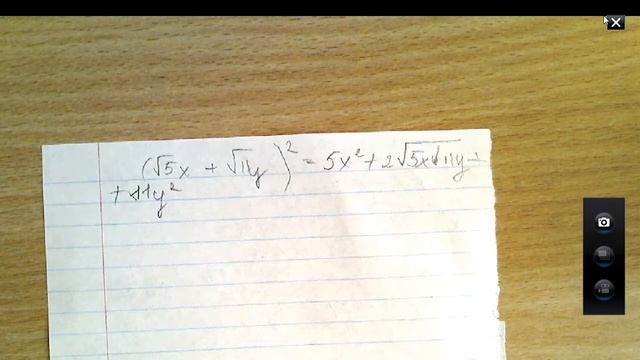 (√5x + √11y)² = 5x² + 2√5x√11y +
+ 11y²